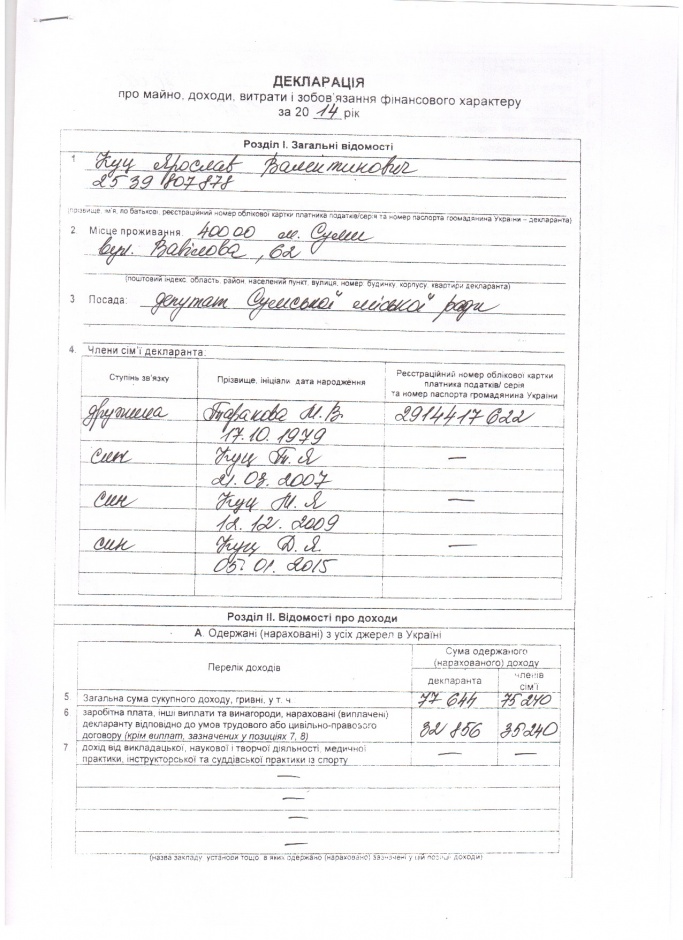 ДЕКЛАРАЦІЯ
про майно, доходи, витрати і зобов'язання фінансового характеру
за 20 14 рік
Розділ I. Загальні відомості
1 Куц Ярослав Валентинович
2539807878
(прізвище, ім'я, по батькові, реєстраційний номер облікової картки платника податків/серія та номер паспорта громадянина України – декларанта)
2 Місце проживання: 40000 м. Суми
вул. Вавілова, 62
(поштовий індекс, область, район, населений пункт, вулиця, номер: будинку, корпусу, квартири декларанта)
3 Посада: депутат Сумської міської ради
4. Члени сім'ї декларанта:
Ступінь зв'язку Прізвище, ініціали, дата народження Реєстраційний номер облікової картки
платника податків/ серія
та номер паспорта громадянина України
дружина Таракова М. В. 2914417622
17.10.1979
син Куц Т. Я —
21.03.2007
син Куц М. Я —
12.12.2009
син Куц Д. Я. —
05.01.2015
Розділ II. Відомості про доходи
А. Одержані (нараховані) з усіх джерел в Україні
Перелік доходів Сума одержаного
(нарахованого) доходу
декларанта членів
сім'ї
5 Загальна сума сукупного доходу, гривні, у т. ч. 77 644 75240
6 заробітна плата, інші виплати та винагороди, нараховані (виплачені)
декларанту відповідно до умов трудового або цивільно-правового
договору (крім виплат, зазначених у позиціях 7, 8) 32 856 35240
7 дохід від викладацької, наукової і творчої діяльності, медичної
практики, інструкторської та суддівської практики із спорту — —
—
—
—
—
(назва закладу, установи тощо, в яких одержано (нараховано) зазначені у цій позиції доходи)